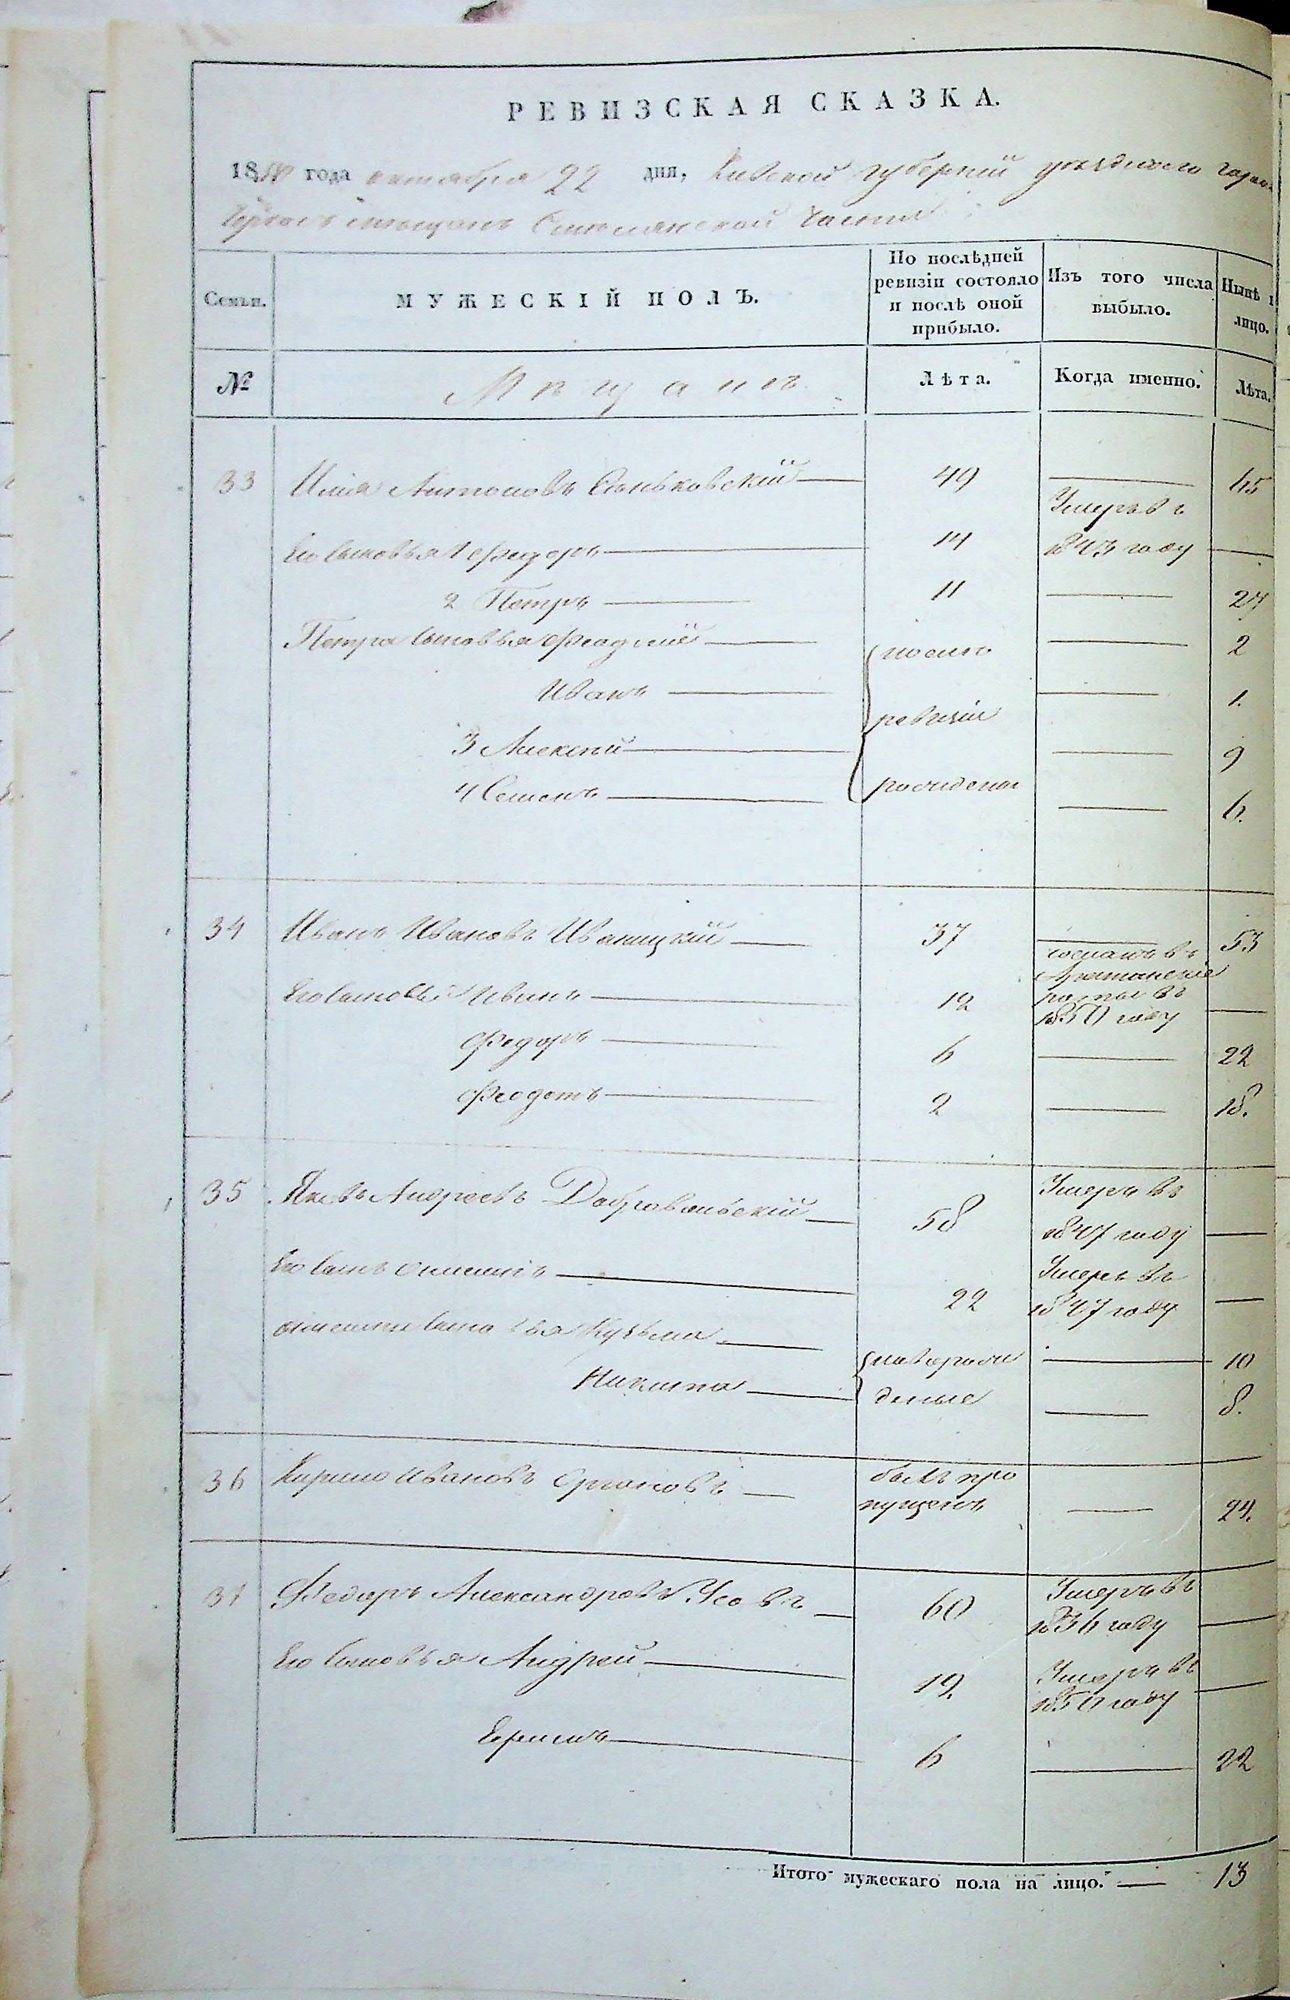 РЕВИЗСКАЯ СКАЗКА.
1850 года октября 22 дня, Киевской губерніи уѣзднаго горо
мѣщанъ части
Семьи. МУЖЕСКІЙ ПОЛЪ. По послѣдней ревизіи состояло и послѣ оной прибыло. Изъ того числа выбыло. Нынѣ
лицо.
№ Мѣщанъ Лѣта. Когда именно. Лѣта.
33 Илья Антоновъ Сѣньковскій 49 65
Его сыновья 1 Федоръ 14 Умеръ въ 1843 году
2 Петръ 11 27
Петра сыновья 2
Иванъ 1.
3 Алексѣй 9
4 Семенъ 6.
после ревизіи рожденны
34 Иванъ Ивановъ Иваницкій 37 53
Его сыновья Иванъ 12 въ
роты въ
1850 году
Федоръ 6 22
Феодотъ 2 18.
35 Яковъ Андреевъ Добровольскій 58 Умеръ въ
1847 году
Его сынъ 22 Умеръ въ
1847 году
сыновья Кузьма новорож 10
Никита денные 8.
36 Кирило Ивановъ былъ про
пущенъ 24.
37 Федоръ Александровъ Усовъ 60 Умеръ въ
1836 году
Его сыновья Андрей 19. Умеръ въ
1850 году
6 22
Итого мужескаго пола на лицо. 13